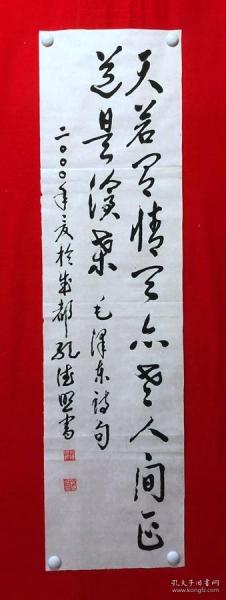 天若有情天亦老人间正
道是滄桑 毛澤东詩句
二〇〇〇年夏於成都孔德书
孔夫子旧书网